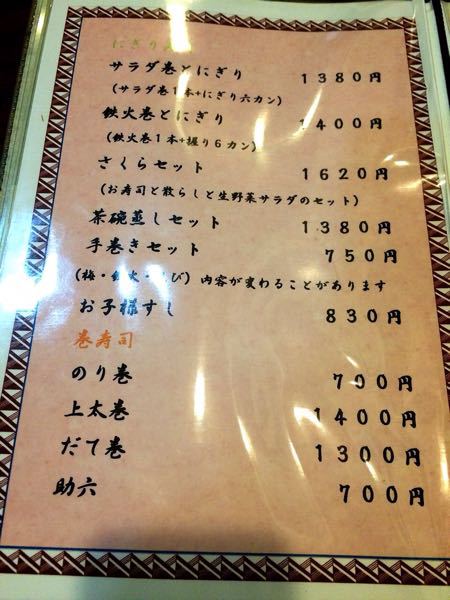 にぎり
サラダ巻とにぎり 1380円
(サラダ巻1本+にぎり六カン)
鉄火巻とにぎり 1400円
(鉄火巻1本+握り6カン)
さくらセット 1620円
(お寿司と散らしと生野菜サラダのセット)
茶碗蒸しセット 1380円
手巻きセット 750円
(梅・鉄火・えび) 内容が変わることがあります
お子様すし 830円
巻寿司
のり巻 700円
上太巻 1400円
だて巻 1300円
助六 700円